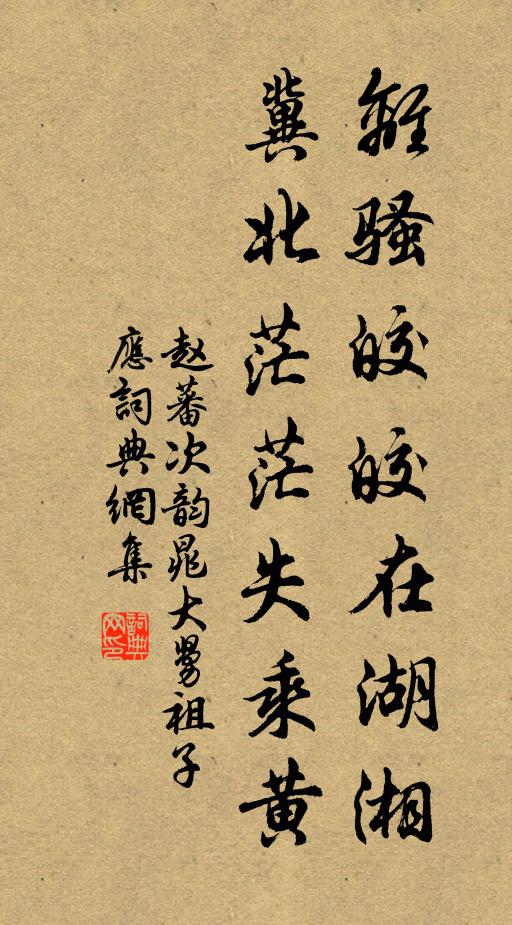 離騷皎皎在湖湘
冀北茫茫失乘黃
赵蕃次韵晁大舅祖子
應詞典網集
詞典
网印